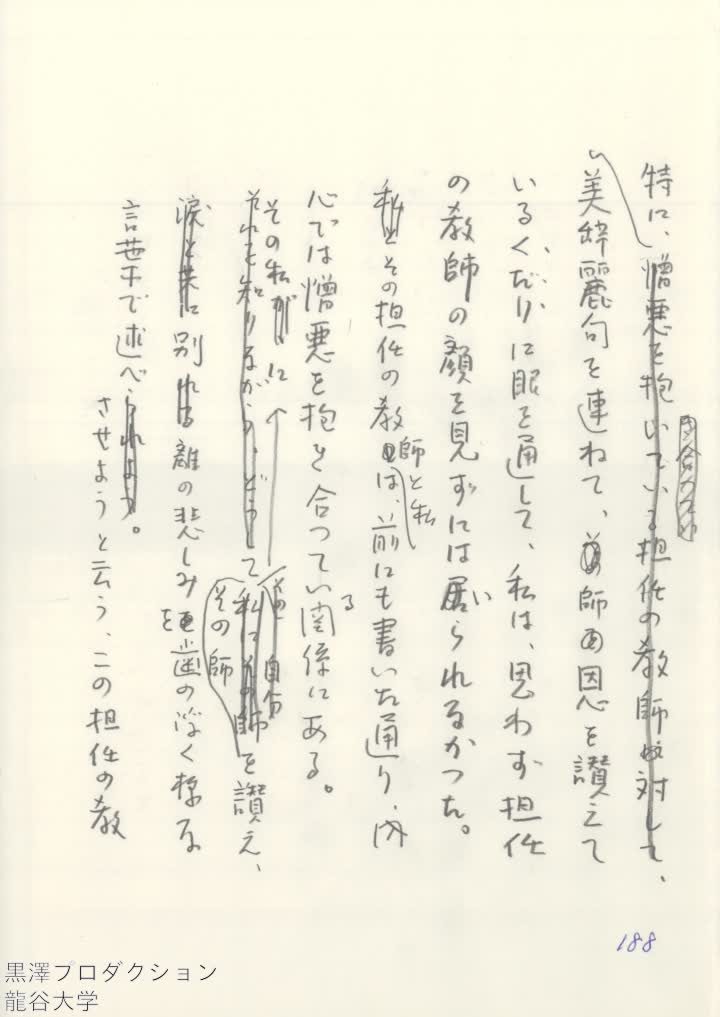 特に、憎悪を抱いている担任の教師に対して、
美辞麗句を連ねて、師の恩を讃えて
いるくだりに眼を通して、私は、思わず担任
の教師の顔を見ずには居いられなかつた。
私とその担任の教師と私は、前にも書いた通り、内
心では憎悪を抱き合つてい関係にある。
る
その私がに
それを知りながら、どうして私にその師を讃え、
自分
その師
涙と共に別れる離の悲しみを歯の浮く様な
言葉で述べられよう。
させようと云う、この担任の教
188
黒澤プロダクション
龍谷大学